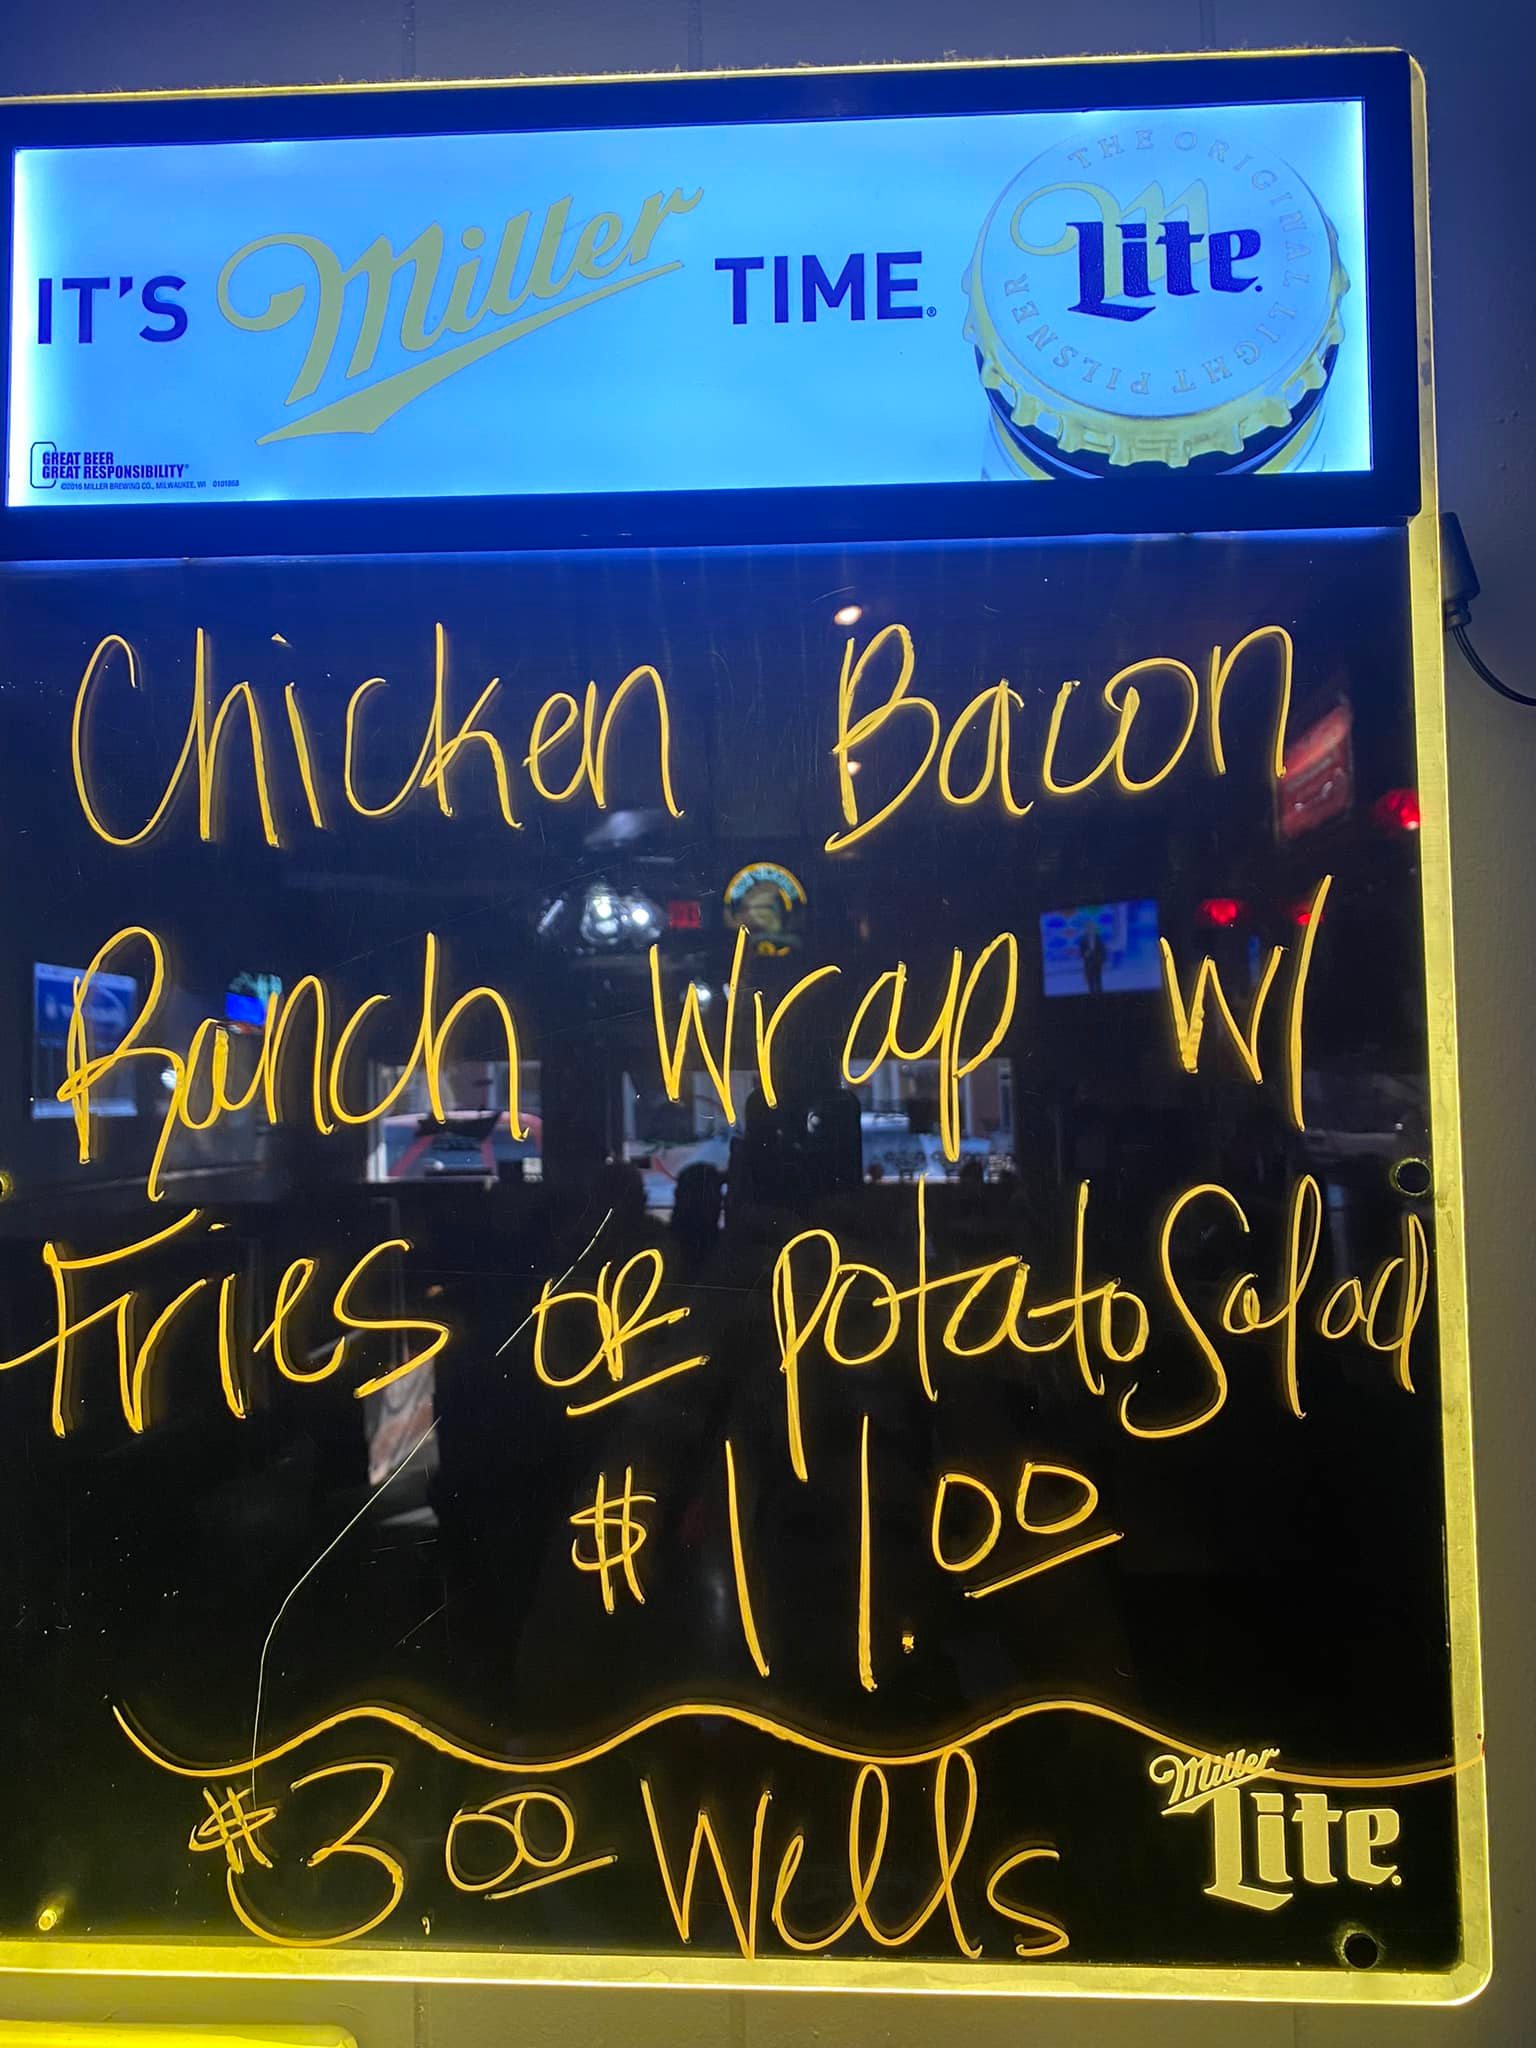 IT'S Miller TIME.®
THE ORIGINAL LIGHT PILSNER
Lite
GREAT BEER
GREAT RESPONSIBILITY®
©2016 MILLER BREWING CO., MILWAUKEE, WI 0101868
Chicken Bacon
Ranch Wrap w/
Fries OR potato Salad
$11.00
$3.00 Wells
Miller
Lite